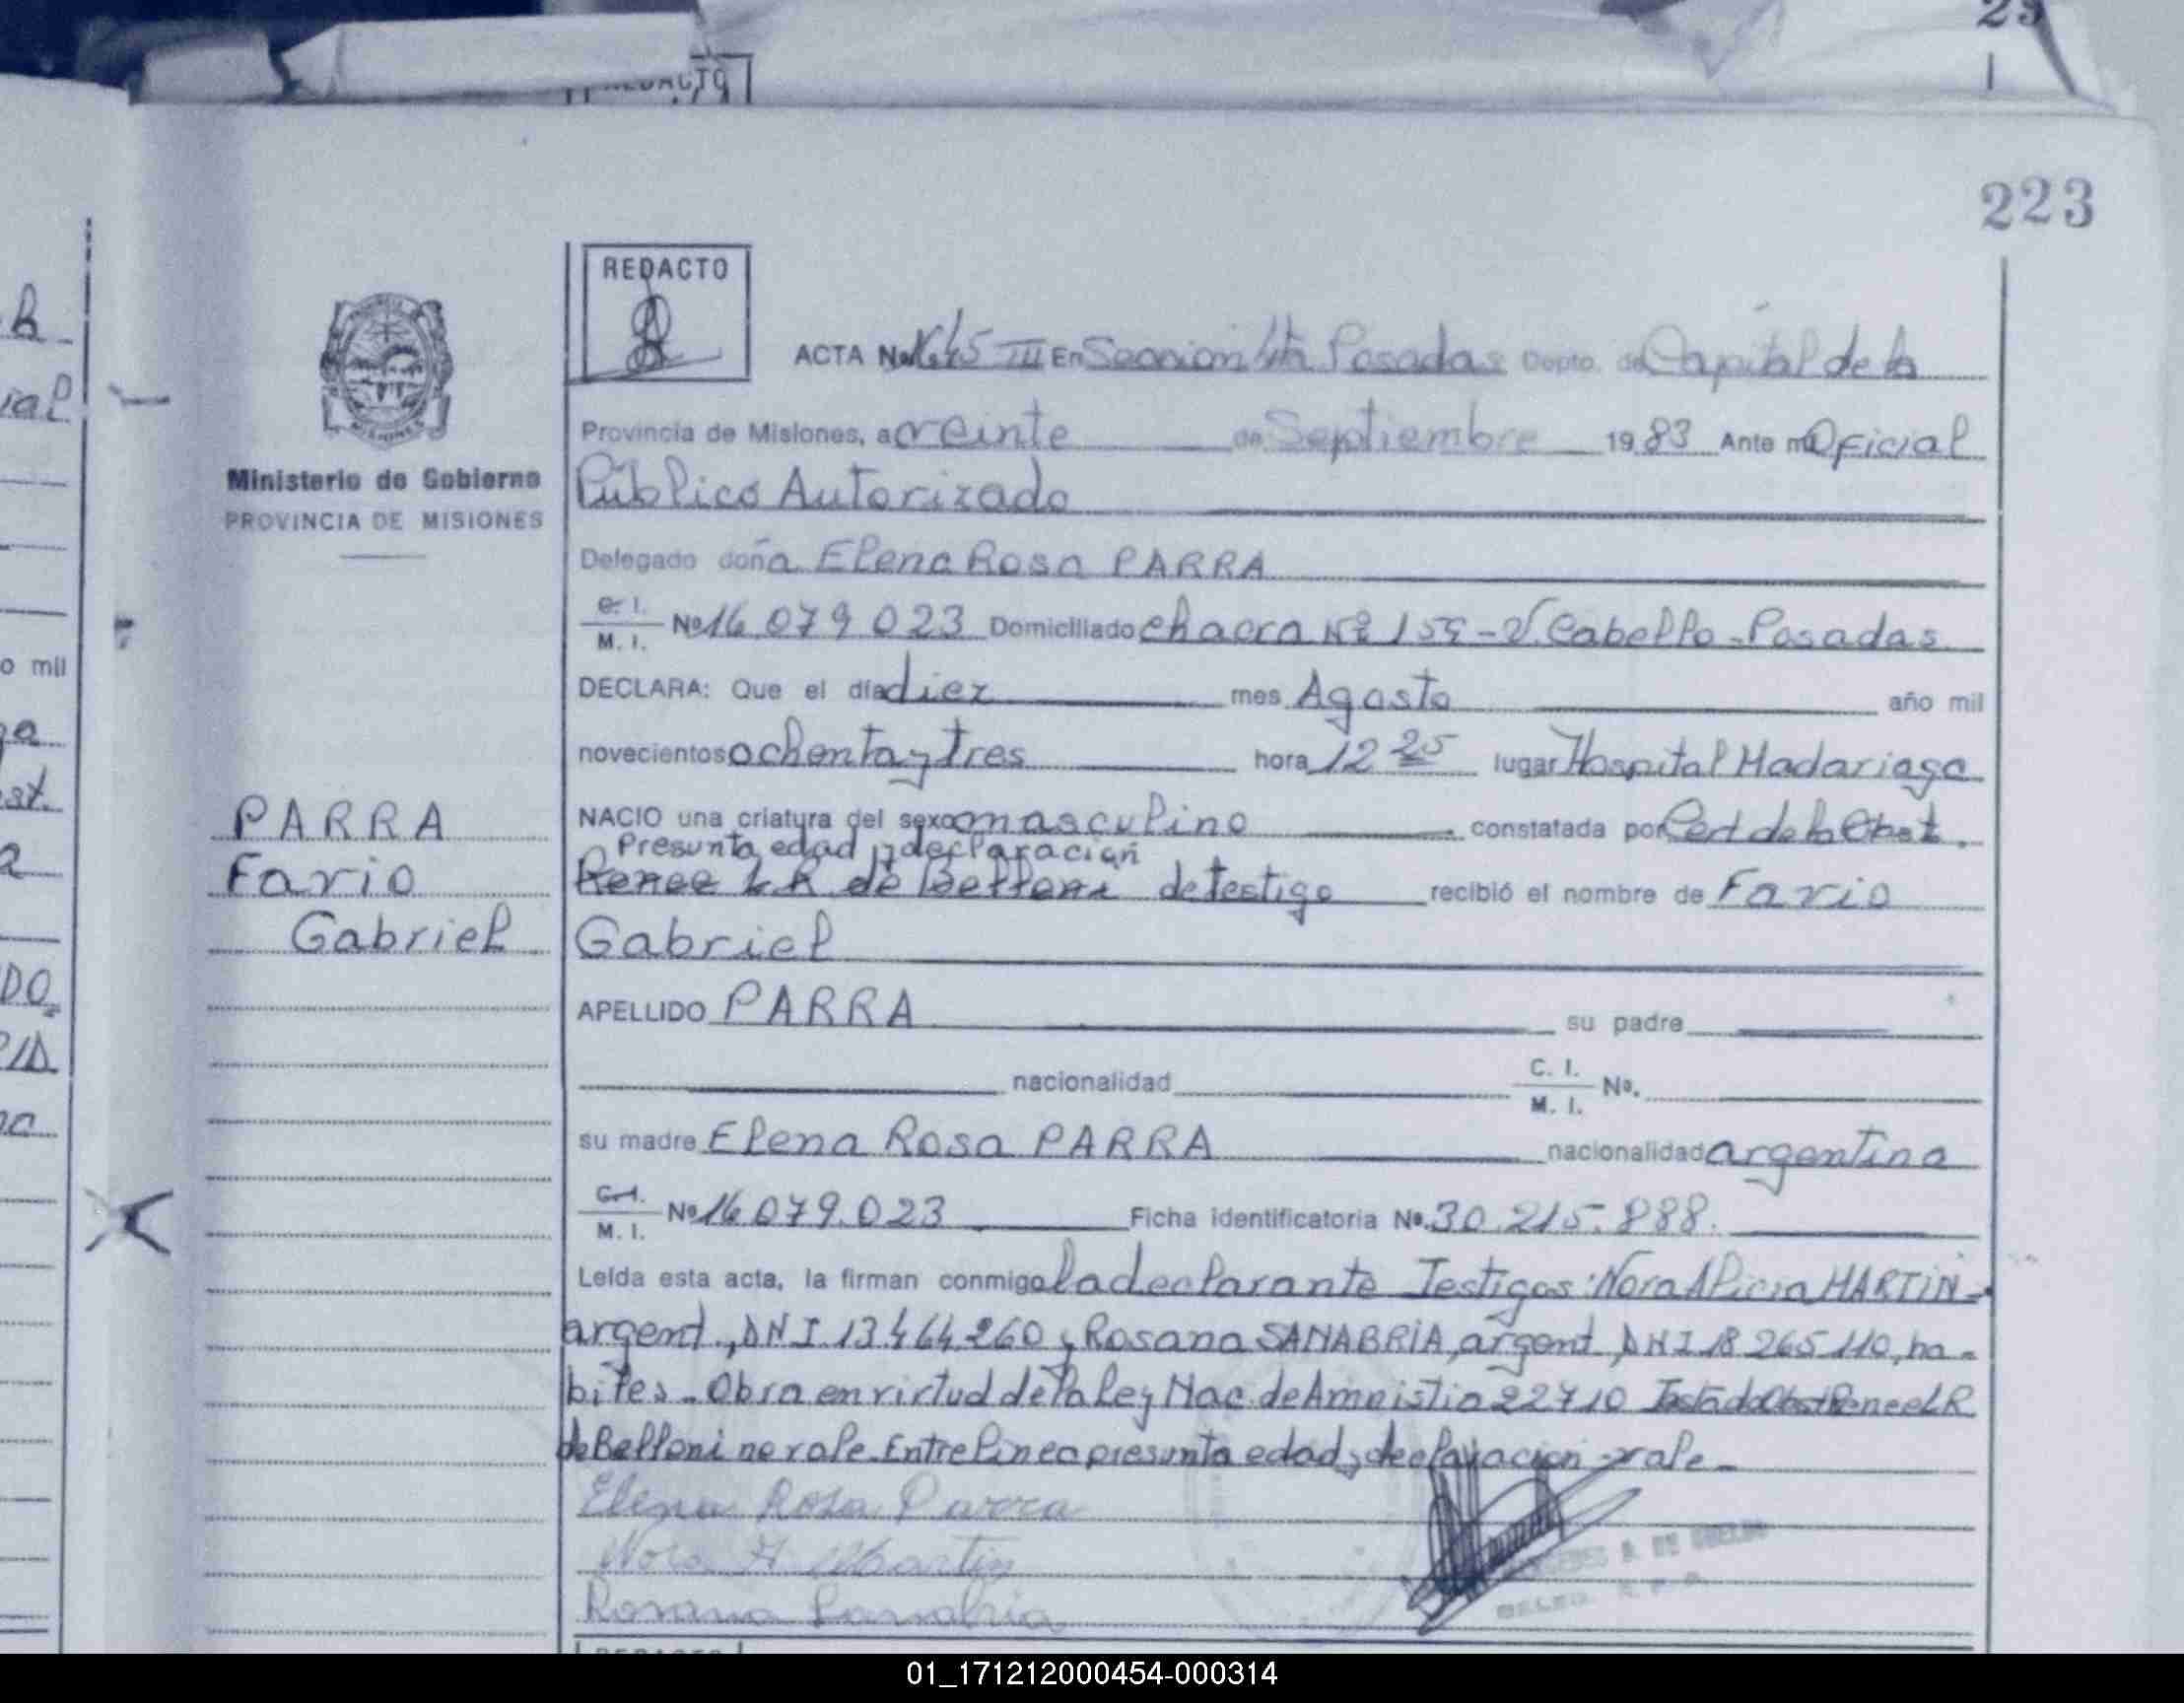 25
REDACTO
223
REDACTO
ACTA No 645 III En Seccion 4ta Posadas Depto. de Capital de la
Provincia de Misiones, a veinte de Septiembre 1983 Ante mi Oficial
Ministerio de Gobierno
PROVINCIA DE MISIONES
Público Autorizado
Delegado doña Elena Rosa PARRA
C. I. M. I. No 16 079 023 Domiciliado chacra Nº 159 - V. Cabello - Posadas
DECLARA: Que el día diez mes Agosto año mil
novecientos ochenta y tres hora 12 25 lugar Hospital Madariaga
NACIO una criatura del sexo masculino constatada por Cert de la Obst.
Presunta edad y declaración
Renee L R de Belloni de testigo recibió el nombre de Favio
Gabriel
PARRA
Favio
Gabriel
APELLIDO PARRA su padre
nacionalidad C. I. M. I. No.
su madre Elena Rosa PARRA nacionalidad argentina
C. I. M. I. No 16 079.023 Ficha identificatoria No. 30.215.888.
Leída esta acta, la firman conmigo la declarante Testigos: Nora Alicia MARTIN-
argent., DNI 13.464.260 y Rosana SANABRIA, argent, DNI 18 265 110, ha-
biles - Obra en virtud de la Ley Nac. de Amnistia 22710 Testado Obst Renee L R
de Belloni no vale. Entre linea presunta edad y declaracion - vale -
Elena Rosa Parra
Nora A. Martin
Rosana Sanabria
01_171212000454-000314